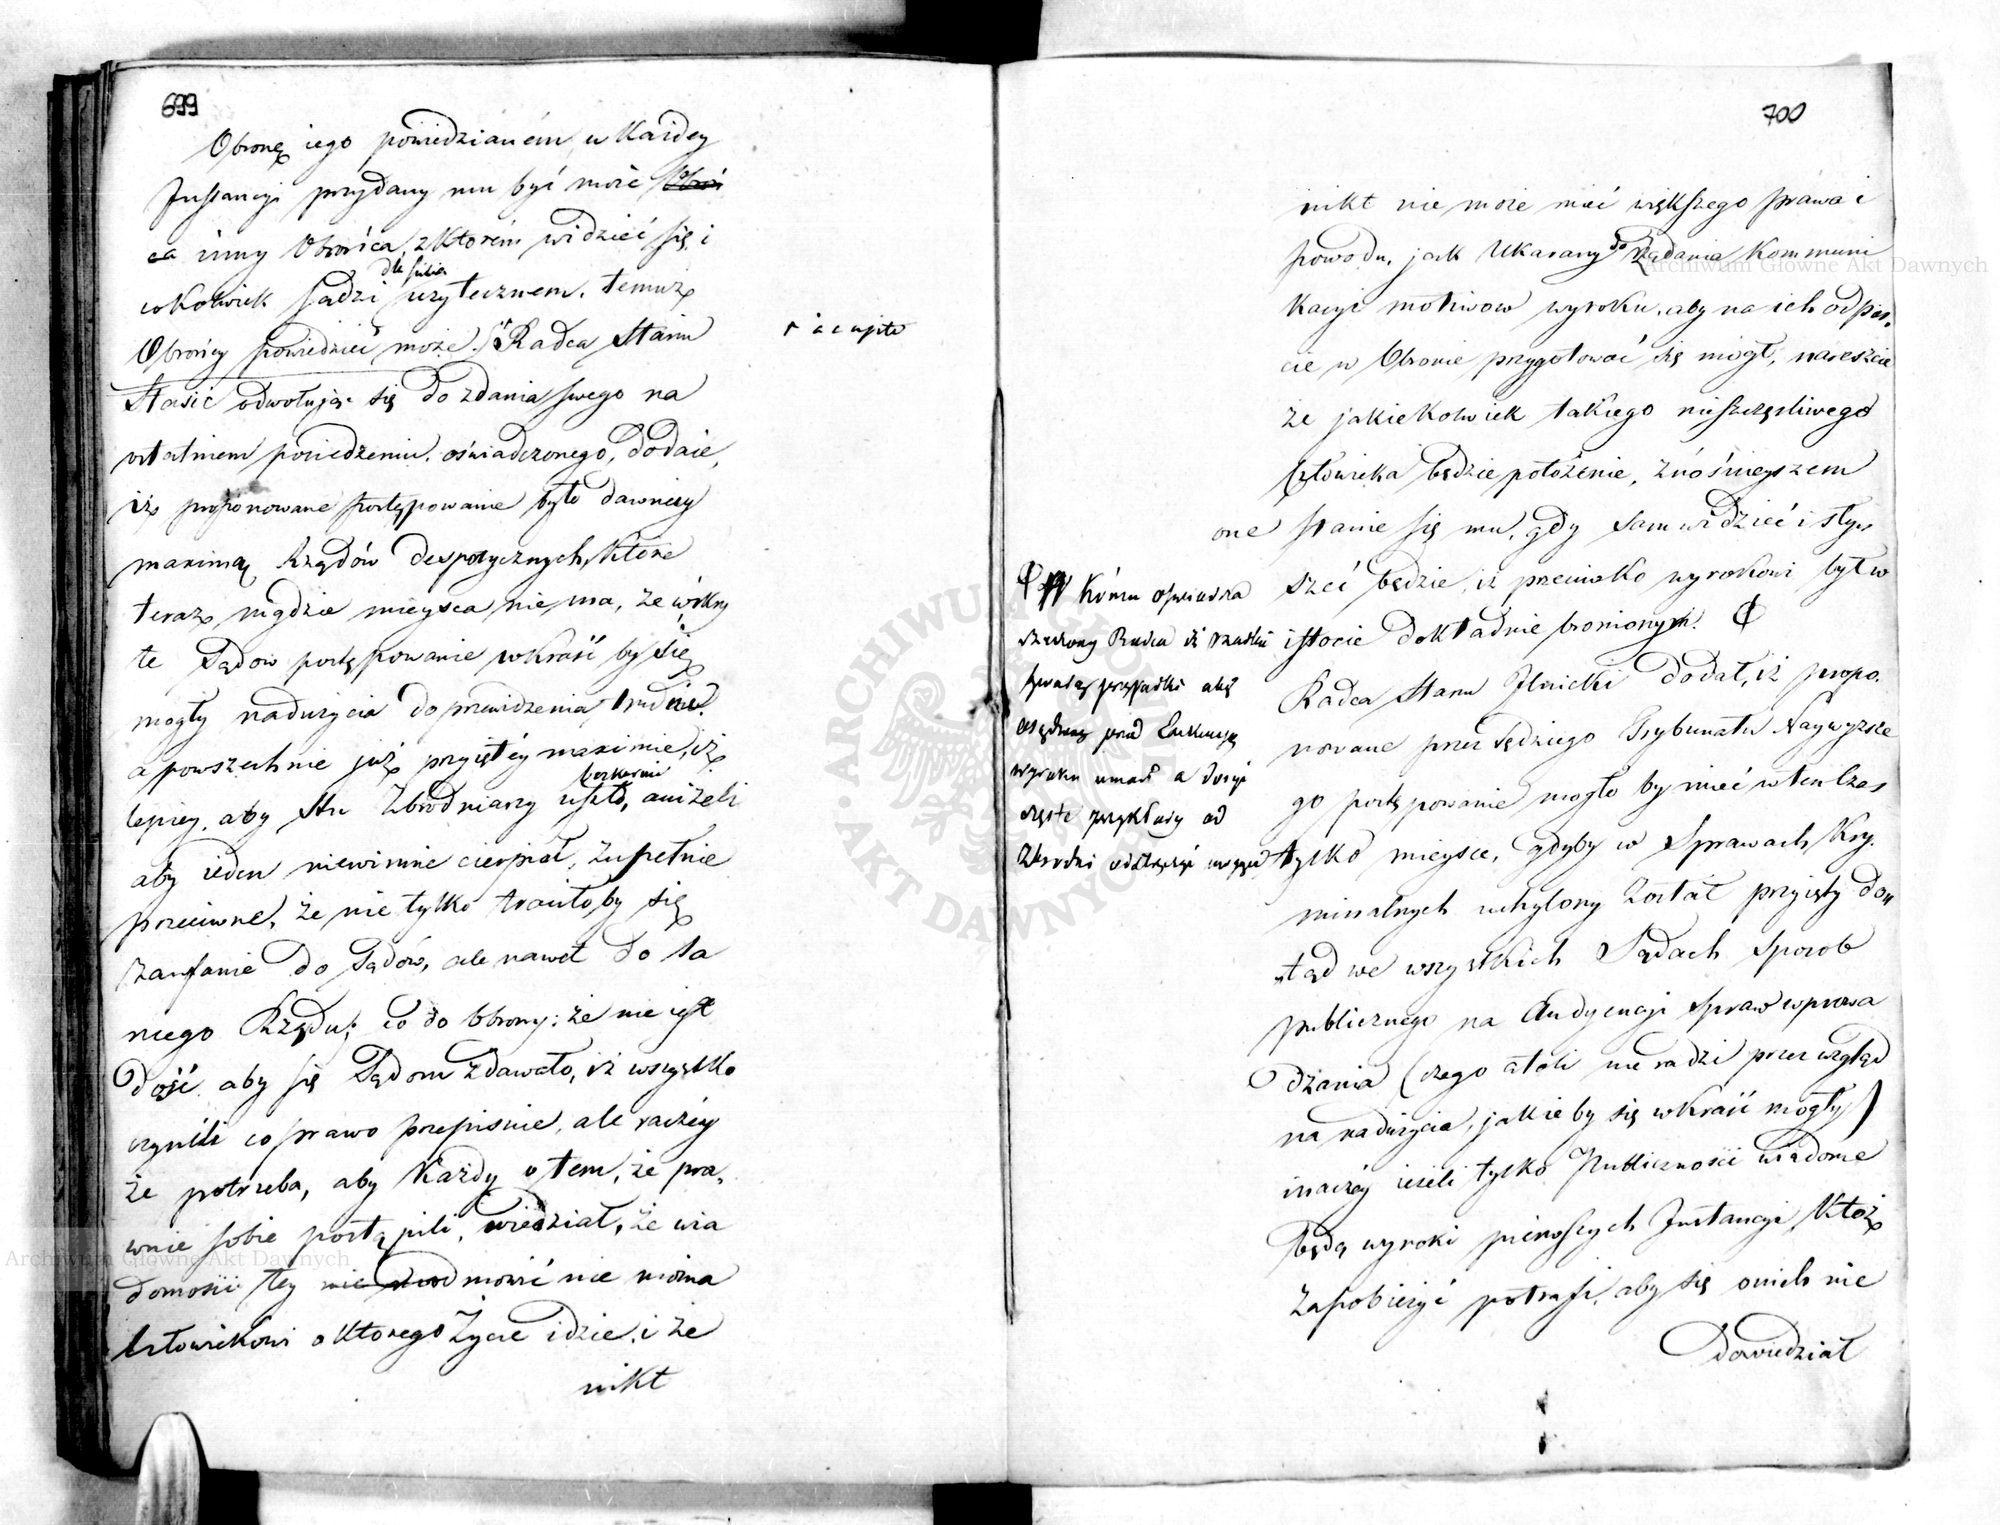 699
Obronę iego powiedzianém, w Kaźdey
Instancji przydany mu być może
ca inny Obrońca, z Którém widzieć się, i
cokolwiek sądzi dla siebie użytecznem, temuż
Obrońcy powiedzieć może. Radca Stanu
Stasic odwołując się do zdania swego na
ostatniem posiedzeniu oświadczonego, dodaie,
iż proponowane postępowanie było dawniey
maximą Rządów despotycznych, Które
teraz nigdzie mieysca nie ma, że w skry
te Sądow postępowanie wkraść by się
mogły nadużycia do przewidzenia trudne
a powszechnie już przyiętéy maximie, iż
lepiey, aby Stu Zbrodniarzy bezkarnie uszło, aniżeli
aby ieden niewinnie cierpiał, zupełnie
przeciwne, że nie tylko traciłoby się
zaufanie do Sądów, ale nawet do sa
mego Rządu; co do Obrony: że nie iest
dość aby się Sądom zdawało, iż wszystko
czynili co prawo przepisuie, ale raczéy
że potrzeba, aby Każdy o tem, że pra,
wnie sobie postąpili, wiedział, że wia
domości tey odmowić nie można
Człowiekowi o Którego Życie idzie, i że
nikt
700
nikt nie może mieć większego prawa i
powodu, jak Ukarany do żądania Kommuni
kacyi motiwow wyroku, aby na ich odpar,
cie w Obronie przygotować się mógł, nareszcie
że jakiekolwiek takiego nieszczęśliwego
Człowieka będzie położenie, znośnieyszem
one stanie się mu, gdy sam widzieć i sły,
szeć będzie, iż przeciwko wyrokowi był w
istocie dokładnie bronionym.
Kómu oświadcza
rzeczony Radca iż rzadkie
bywaią przypadki aby
osądzony przed
wyroku umarł a dosyć
częste przykłady od
Zbrodni odstręczyć mogące
Radca Stanu Ilnicki dodał, iż propo,
nowane przez Sędziego Trybunału Naywyższe
go postępowanie mogło by mieć wtenczas
tylko mieysce, gdyby w Sprawach Kry,
minalnych uchylony został przyięty do„
„tąd we wszystkich Sądach Sposob
publicznego na Audyencji Spraw wprowa
dzania (czego atoli nie radzi przez wzgląd
na nadużycia, jakie by się wkraść mogły)
inaczéy ieżeli tylko Publiczności wiadome
będą wyroki pierwszych Instancyi, Któż
Zapobieżyć potrafi, aby się o nich nie
dowiedział